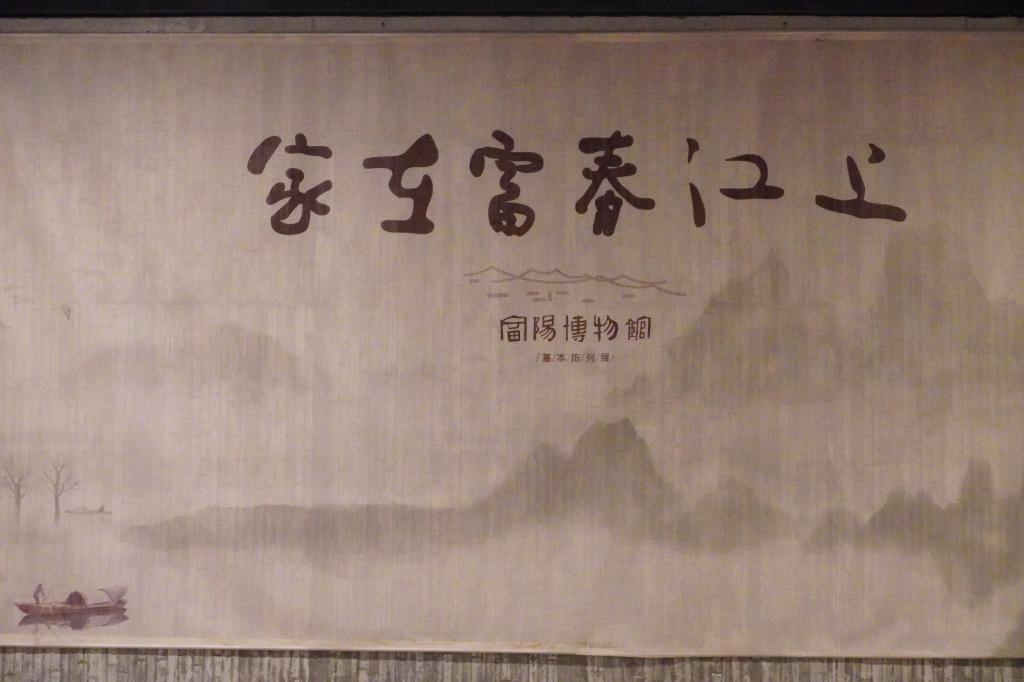 家在富春江上
富陽博物館
/基/本/陈/列/展/